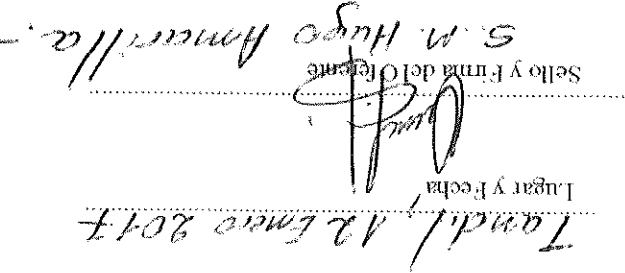 Tandil, 12 Enero 2017
Lugar y Fecha
Sello y Firma del Oferente
S. M. Hugo Amarilla.-